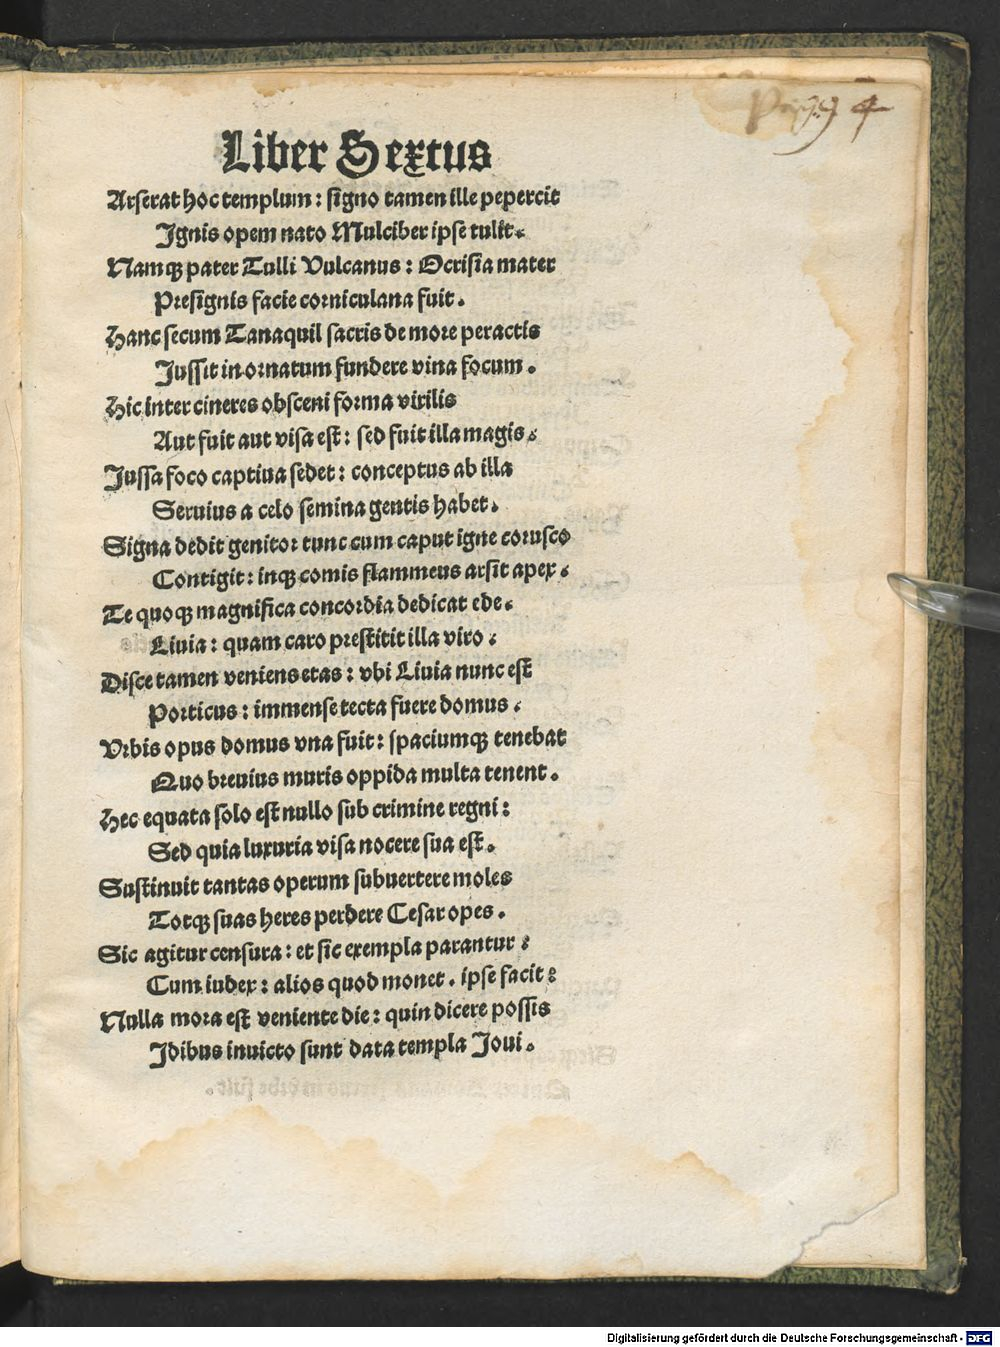 Liber Sextus
Arserat hoc templum : signo tamen ille pepercit
Ignis opem nato Mulciber ipse tulit.
Namqꝫ pater Tulli Vulcanus : Ocrisia mater
Presignis facie corniculana fuit.
Hanc secum Tanaquil sacris de more peractis
Jussit in ornatum fundere vina focum.
Hic inter cineres obsceni forma virilis
Aut fuit aut visa est : sed fuit illa magis.
Jussa foco captiua sedet : conceptus ab illa
Seruius a celo semina gentis habet.
Signa dedit genitor tunc cum caput igne corusco
Contigit : inqꝫ comis flammeus arsit apex.
Te quoqꝫ magnifica concordia dedicat ede.
Liuia : quam caro prestitit illa viro :
Disce tamen veniens etas : vbi Liuia nunc est
Porticus : immense tecta fuere domus.
Vrbis opus domus vna fuit : spaciumqꝫ tenebat
Quo breuius muris oppida multa tenent.
Hec equata solo est nullo sub crimine regni :
Sed quia luxuria visa nocere sua est.
Sustinuit tantas operum subuertere moles
Totqꝫ suas heres perdere Cesar opes.
Sic agitur censura : et sic exempla parantur :
Cum iudex : alios quod monet. ipse facit :
Nulla mora est veniente die : quin dicere possis
Idibus inuicto sunt data templa Joui.
Digitalisierung gefördert durch die Deutsche Forschungsgemeinschaft - DFG